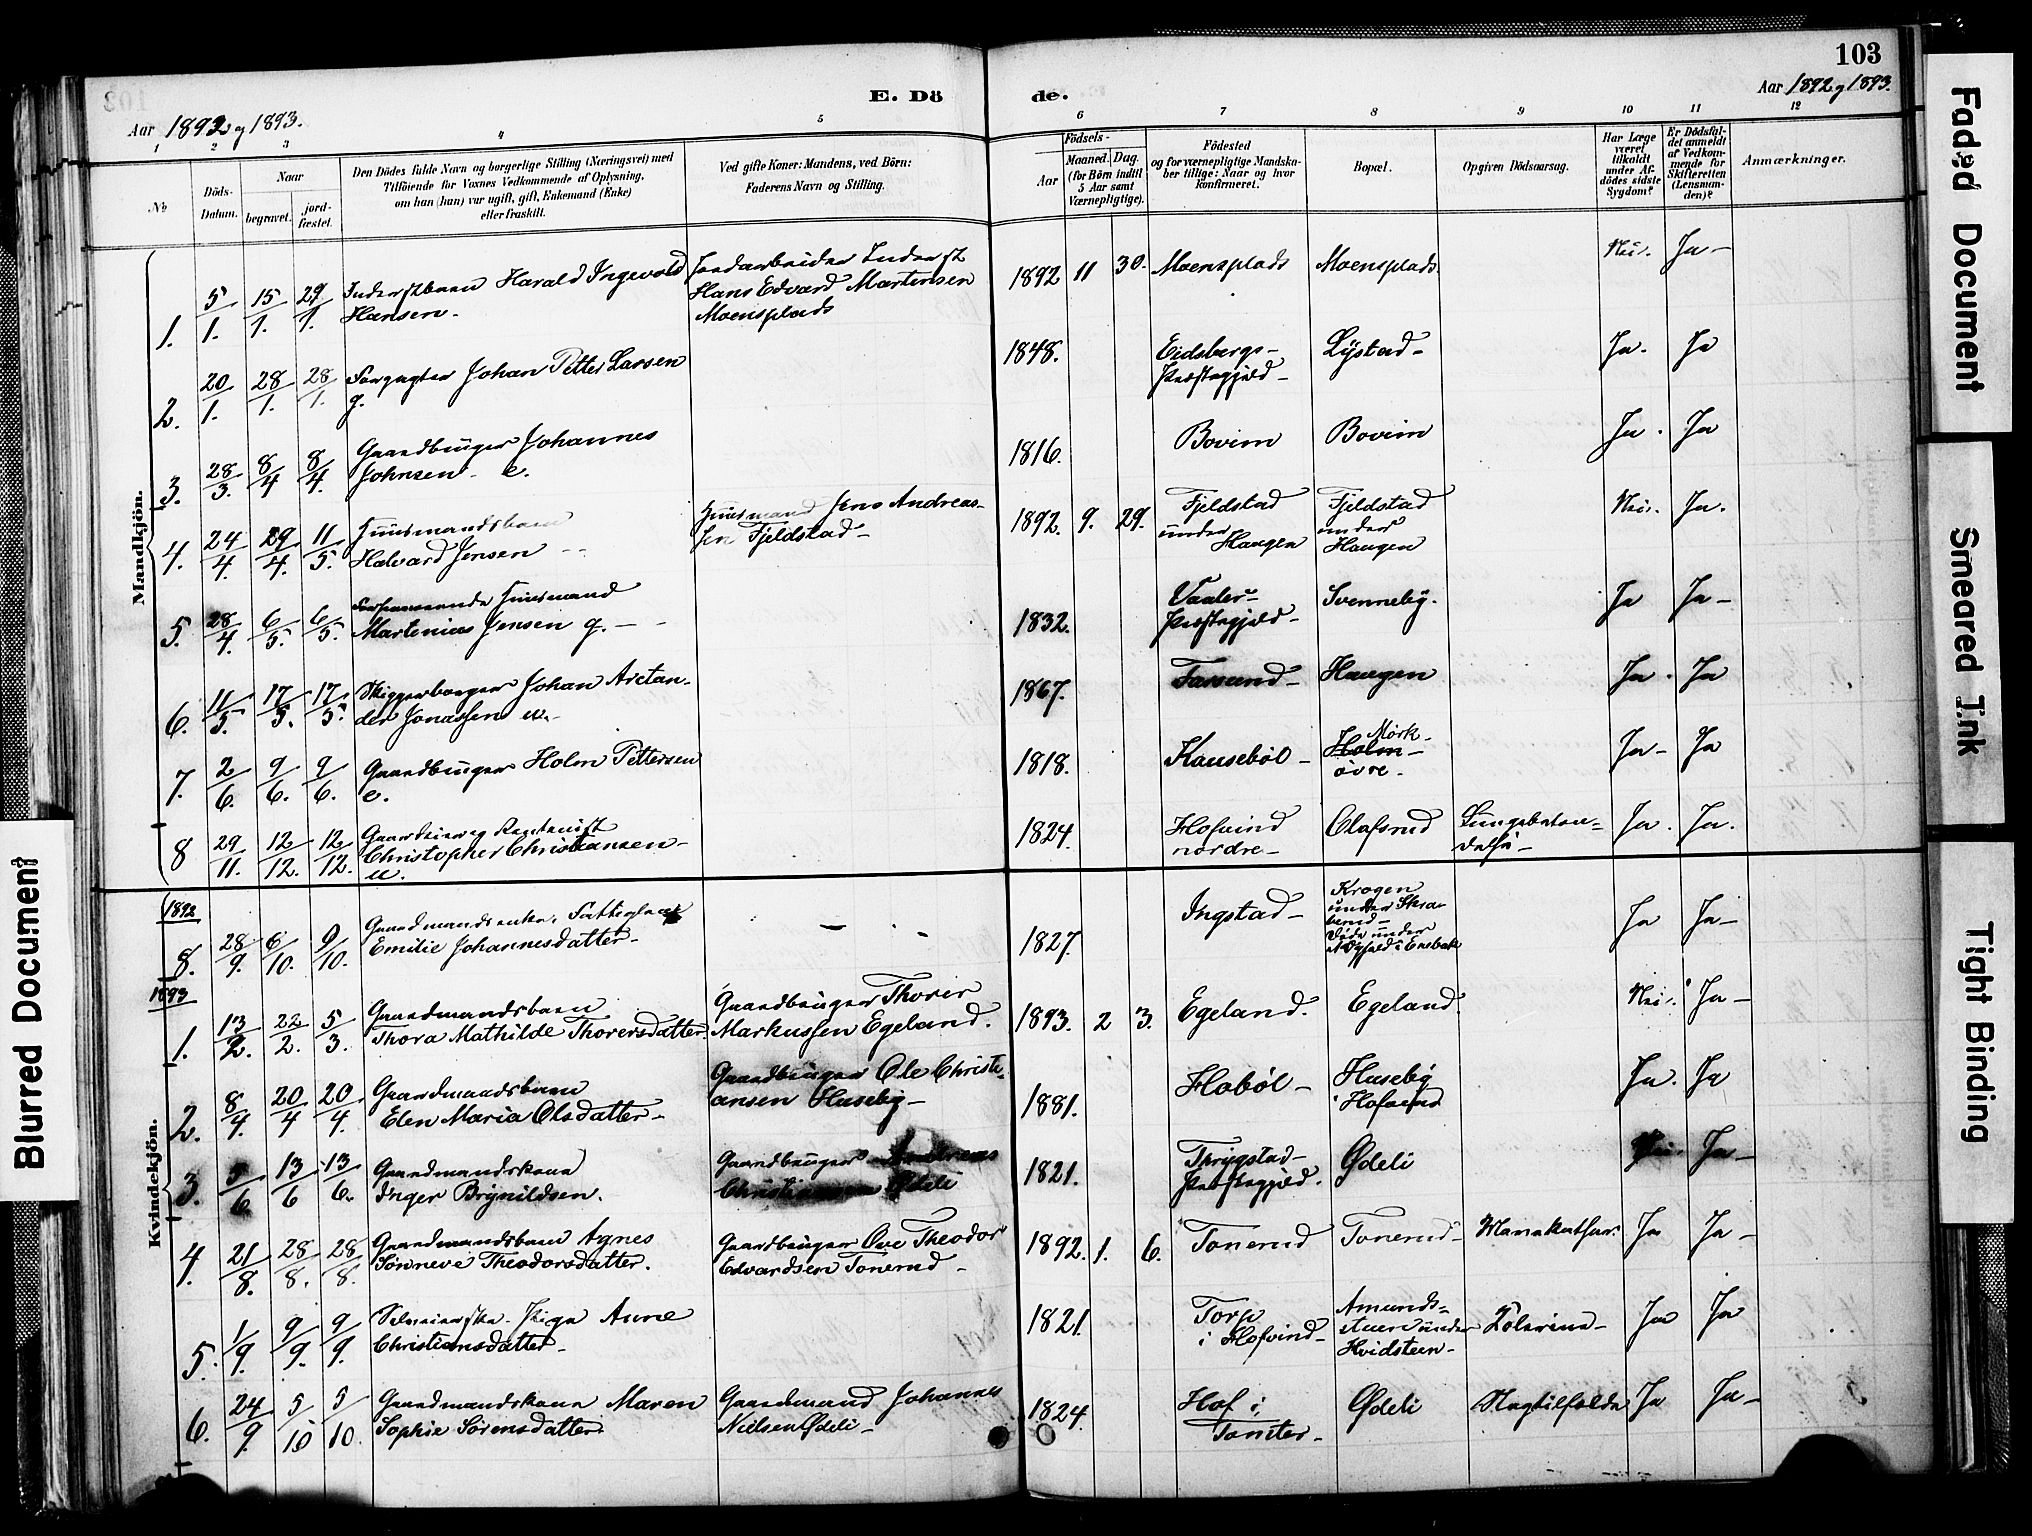 103
E. Dö de.
Aar 1892 og 1893.
Aar 1892 og 1893.
1 2 3 4 5 6 7 8 9 10 11 12
No
Döds-
Datum.
Naar
begravet.
jord-
fæstet.
Den Dödes fulde Navn og borgerlige Stilling (Næringsvei) med
Tilföiende for Voxnes Vedkommende af Oplysning,
om han (hun) var ugift, gift, Enkemand (Enke)
eller fraskilt.
Ved gifte Koner: Mandens, ved Börn:
Faderens Navn og Stilling.
Födsels-
Aar
Maaned.
Dag.
(for Börn indtil
5 Aar samt
Værnepligtige).
Födested
og for værnepligtige Mandska-
ber tillige: Naar og hvor
konfirmeret.
Bopæl.
Opgiven Dödsaarsag.
Har Læge
været
tilkaldt
under Af-
dödes sidste
Sygdom?
Er Dödsfal-
det anmeldt
af Vedkom-
mende for
Skifteretten
(Lensman-
den)?
Anmærkninger.
Mandkjön.
1. 5/1. 15/1. 29/1. Inderstbarn Harald Ingevald
Hansen.
Jordarbeider Inderst
Hans Edvard Martinsen
Moensplads
1892 11 30. Moensplads Moensplads. Nei. Ja-
2. 20/1. 28/1. 28/1. Forpagter Johan Petter Larsen
g.
1848. Eidsbergs-
Præstegjeld- Lystad- Ja. Ja
3. 28/3. 8/4 8/4. Gaardbruger Johannes
Johnsen- e.
1816. Bovim Bovim Ja. Ja
4. 24/4. 29/4. 11/5. Huusmandsbarn
Halvard Jensen
Huusmand Jens Andreas-
sen Fjeldstad-
1892. 9. 29. Fjeldstad
under
Haugen
Fjeldstad
under
Haugen Nei. Ja.
5. 28/4. 6/5. 6/5. Huusmand
Martenius Jensen g.
1832. Vaaler-
Præstegjeld- Svenneby. Ja Ja-
6. 11/5. 17/5. 17/5. Johan Arctan-
der Jonassen u.
1867. Farsund- Haugen Ja. Ja
7. 2/6. 9/6. 9/6. Gaardbruger Holm Pettersen
e.
1818. Kausebøl- Holm-
Mørk-
øvre. Ja- Ja
8 29/11. 12/12. 12/12.
Christopher Christiansen-
u.
1824. Hofvind
nordre- Olafsrud Lungebeton-
delse- Ja. Ja.
Kvindekjön.
1892
8. 28/9. 6/10. 9/10. Gaardmandsenke.
Emilie Johannesdatter-
1827. Ingstad- Krogen
under Ja Ja-
1893
1. 13/2. 22/2. 5/3. Gaardmandsbarn
Thora Mathilde Thorersdatter.
Gaardbruger Thorer
Markussen Egeland.
1893. 2 3. Egeland. Egeland. Nei. Ja-
2. 8/4. 20/4 20/4. Gaardmandsbarn
Elen Maria Olsdatter-
Gaardbruger Ole Christi-
ansen Huseby-
1881. Hobøl- Huseby
i Hofvind Ja. Ja
3. 5/6 13/6 13/6. Gaardmandskone
Inger Brynildsen.
Gaardbruger Andreas
Christiansen Ødeli
1821. Thrygstad-
Præstegjeld. Ødeli Nei. Ja-
4. 21/8. 28/8. 28/8. Gaardmandsbarn Agnes
Sønneve Theodorsdatter.
Gaardbruger Ove Theodor
Edvardsen Tonerud-
1892. 1. 6. Tonerud Tonerud- Mavekathar. Ja Ja-
5. 1/9. 9/9. 9/9. Pige Anne
Christiansdatter-
1821. Torp
i Hofvind- Amunds-
stuen under
Hvidsteen- Kolerine- Ja Ja
6. 24/9 5/10 5/10. Gaardmandskone Maren
Sophie Sørensdatter.
Gaardmand Johannes
Nielsen Ødeli-
1824. Hof i
Tomter- Ødeli Slagtilfælde Ja Ja-
Faded Document
Smeared Ink
Tight Binding
Blurred Document